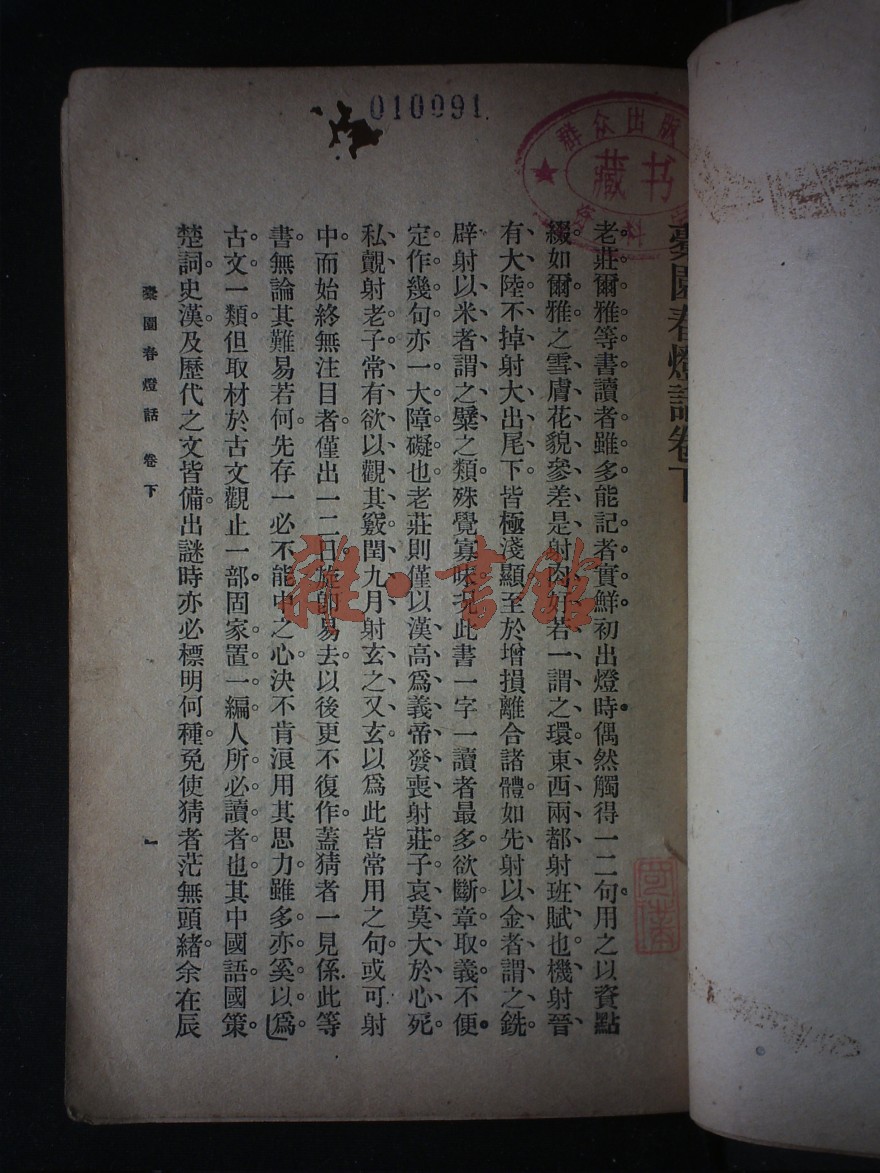 010091
群众出版
藏书
科
園春燈話卷下
老莊爾雅等書。讀者雖多。能記者實鮮。初出燈時。偶然觸得一二句。用之以資點
綴。如爾雅之雪膚花貌參差是射肉好若一謂之環、東西兩都射班賦也、機射晉
有大陸、不掉射大出尾下、皆極淺顯。至於增損離合諸體。如先射以金者謂之銑、
辟射以米者謂之糱之類。殊覺寡味。況此書一字一讀者最多。欲斷章取義。不便
定作幾句。亦一大障礙也。老莊則僅以漢高爲義帝發喪射莊子哀莫大於心死、
私覿射老子常有欲以觀其竅、閏九月射玄之又玄、以爲此皆常用之句。或可射
中。而始終無注目者。僅出一二日。旋即易去。以後更不復作。蓋猜者一見係此等
書。無論其難易若何。先存一必不能中之心。決不肯浪用其思力。雖多亦奚以爲。
古文一類。但取材於古文觀止一部。固家置一編。人所必讀者也。其中國語國策。
楚詞史漢。及歷代之文皆備。出謎時亦必標明何種。免使猜者茫無頭緒。余在辰
橐園春燈話 卷下
一
雜·書館